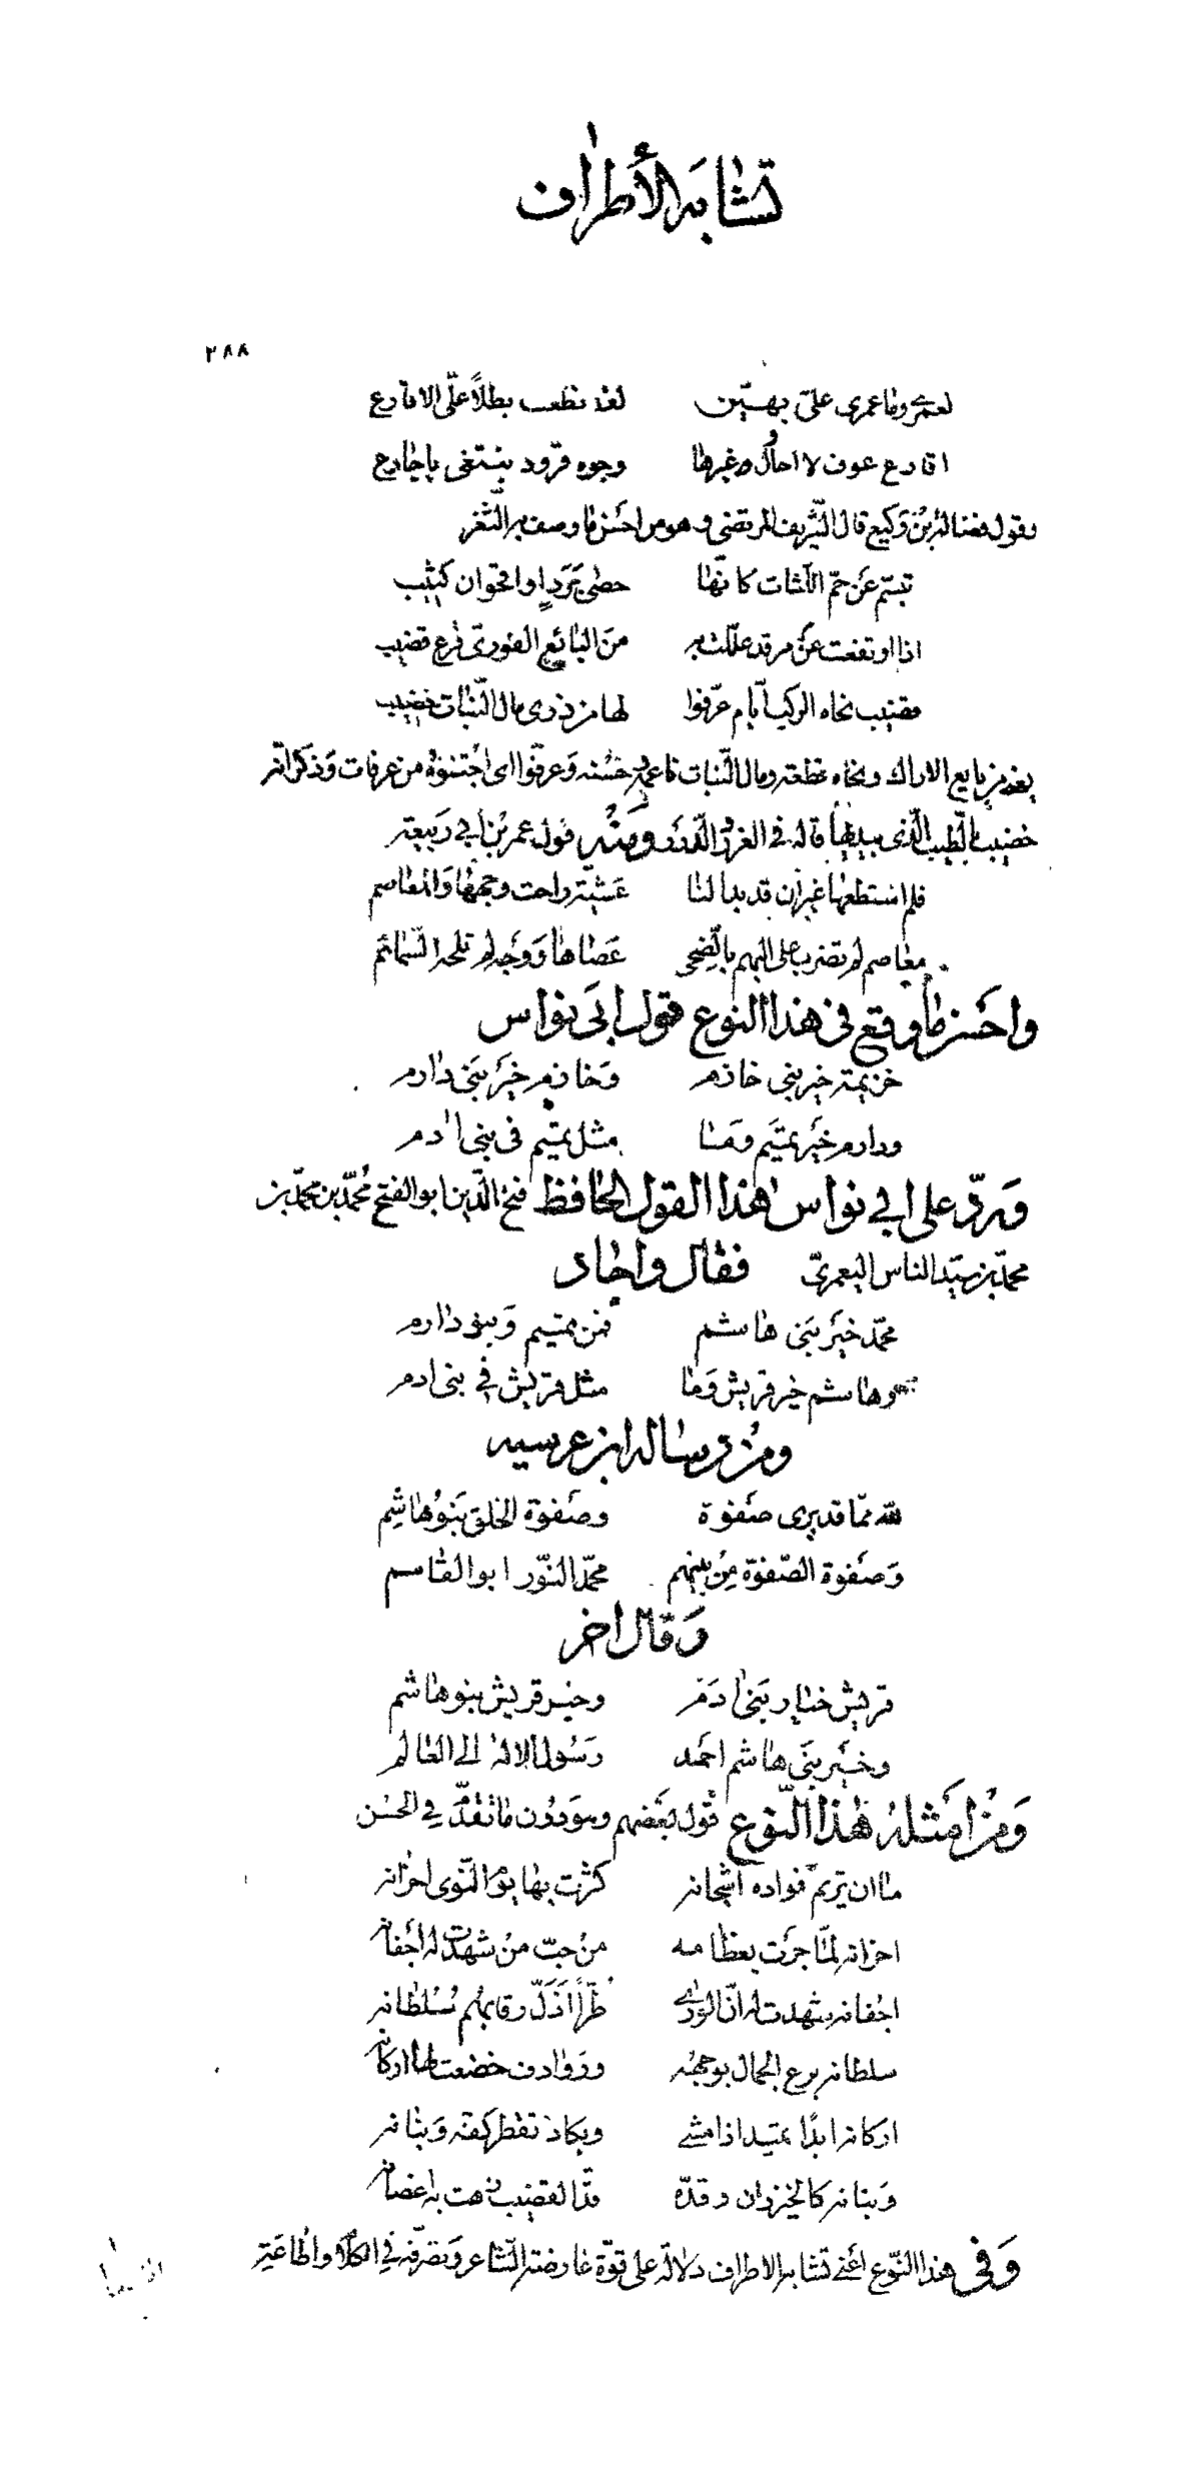 تشابه الأطراف
٢٨٨
لعمري وما عمري علي بهين لقد نطقت بطلاً علي الاقارع
اقارع عوف لا احاول غيرها وجوه قرود تبتغي من تجادع
وقول فضالة بن وكيع قال الشريف المرتضي وهو من احسن ما وصف به الثغر
تبسم عن حم اللثات كانها حصي برد او اقحوان كثيب
اذا ارتفعت عن مرقد عللت به من اليانع الغوري فرع قضيب
قضيب نحاه الركب ايام عرفوا لها من ذري مال النبات خضيب
يعني من يانع الاراك ونحاه قطعه ومال النبات ناعمه وحسنه وعرفوا اي اجتنوه من عرفات وذكر انه
خضيب بالطيب الذي بيديها قاله في الغرر والدرر ومنه قول عمر بن ابي ربيعة
فلم استطعها غير ان قد بدا لنا عشية راحت وجهها والمعاصم
معاصم لم تضرب علي البهم بالضحي عصاها ووجه لم تلحه السمائم
واحسن ما وقع في هذا النوع قول ابي نواس
خزيمة خير بني خازم وخازم خير بني دارم
ودارم خير تميم وما مثل تميم في بني ادم
ورد علي ابي نواس هذا القول الحافظ فتح الدين ابو الفتح محمد بن محمد بن
محمد بن سيد الناس اليعمري فقال واجاد
محمد خير بني هاشم فمن تميم وبنو دارم
وهاشم خير قريش وما مثل قريش في بني ادم
ومن رسالة ابن غرسية
لله مما قد يري صفوة وصفوة الخلق بنو هاشم
وصفوة الصفوة من بينهم محمد النور ابو القاسم
وقال اخر
قريش خيار بني ادم وخير قريش بنو هاشم
وخير بني هاشم احمد رسول الاله الي العالم
ومن امثلة هذا النوع قول بعضهم وهو دون ما تقدم في الحسن
ما ان تريم فؤاده اشجانه كثرت بها يوم النوي احزانه
احزانه لما جرت بعظامه من حب من شهدت له اجفانه
اجفانه شهدت له ان الوري طراً اذل رقابهم سلطانه
سلطانه برع الجمال بوجهه وروادف خضعت لها اركانه
اركانه ابدًا تميد اذا مشي ويكاد تقطر كفه وبنانه
وبنانه كالخيزران وقده قد القضيب زهت به اغصانه
وفي هذا النوع اعني تشابه الاطراف دلالة علي قوة عارضة الشاعر وتصرفه في الكلام واطاعة